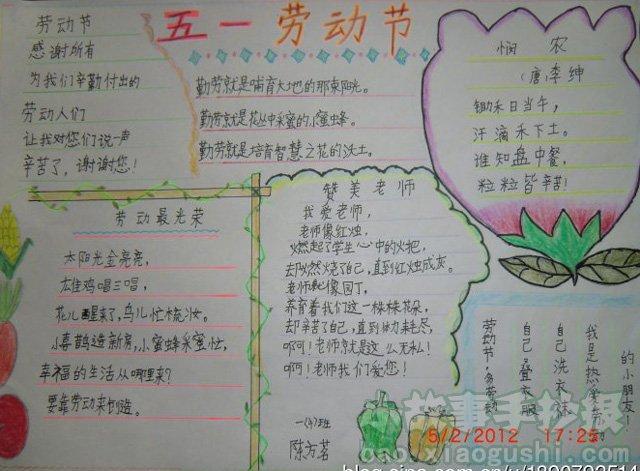 五一劳动节
劳动节
感谢所有
为我们辛勤付出的
劳动人们
让我对您们说一声
辛苦了，谢谢您！
勤劳就是哺育大地的那束阳光。
勤劳就是花丛中采蜜的小蜜蜂。
勤劳就是培育智慧之花的沃土。
悯 农
（唐）李绅
锄禾日当午，
汗滴禾下土。
谁知盘中餐，
粒粒皆辛苦！
劳动最光荣
太阳光金亮亮，
雄鸡唱三唱，
花儿醒来了，鸟儿忙梳妆。
小喜鹊造新房，小蜜蜂采蜜忙，
幸福的生活从哪里来？
要靠劳动来创造。
赞美老师
我爱老师，
老师像红烛，
燃起了学生心中的火把，
却燃烧了自己，直到红烛成灰。
老师像园丁，
养育着我们这一棵棵花朵，
却辛苦了自己，直到体力耗尽，
啊！老师就是这么无私！
啊！老师我们爱您！
陈方茗
劳动节，多劳动
自己叠衣服
自己洗衣袜
我是热爱劳
的小朋友！
故事手抄报
5/2/2012 17:25